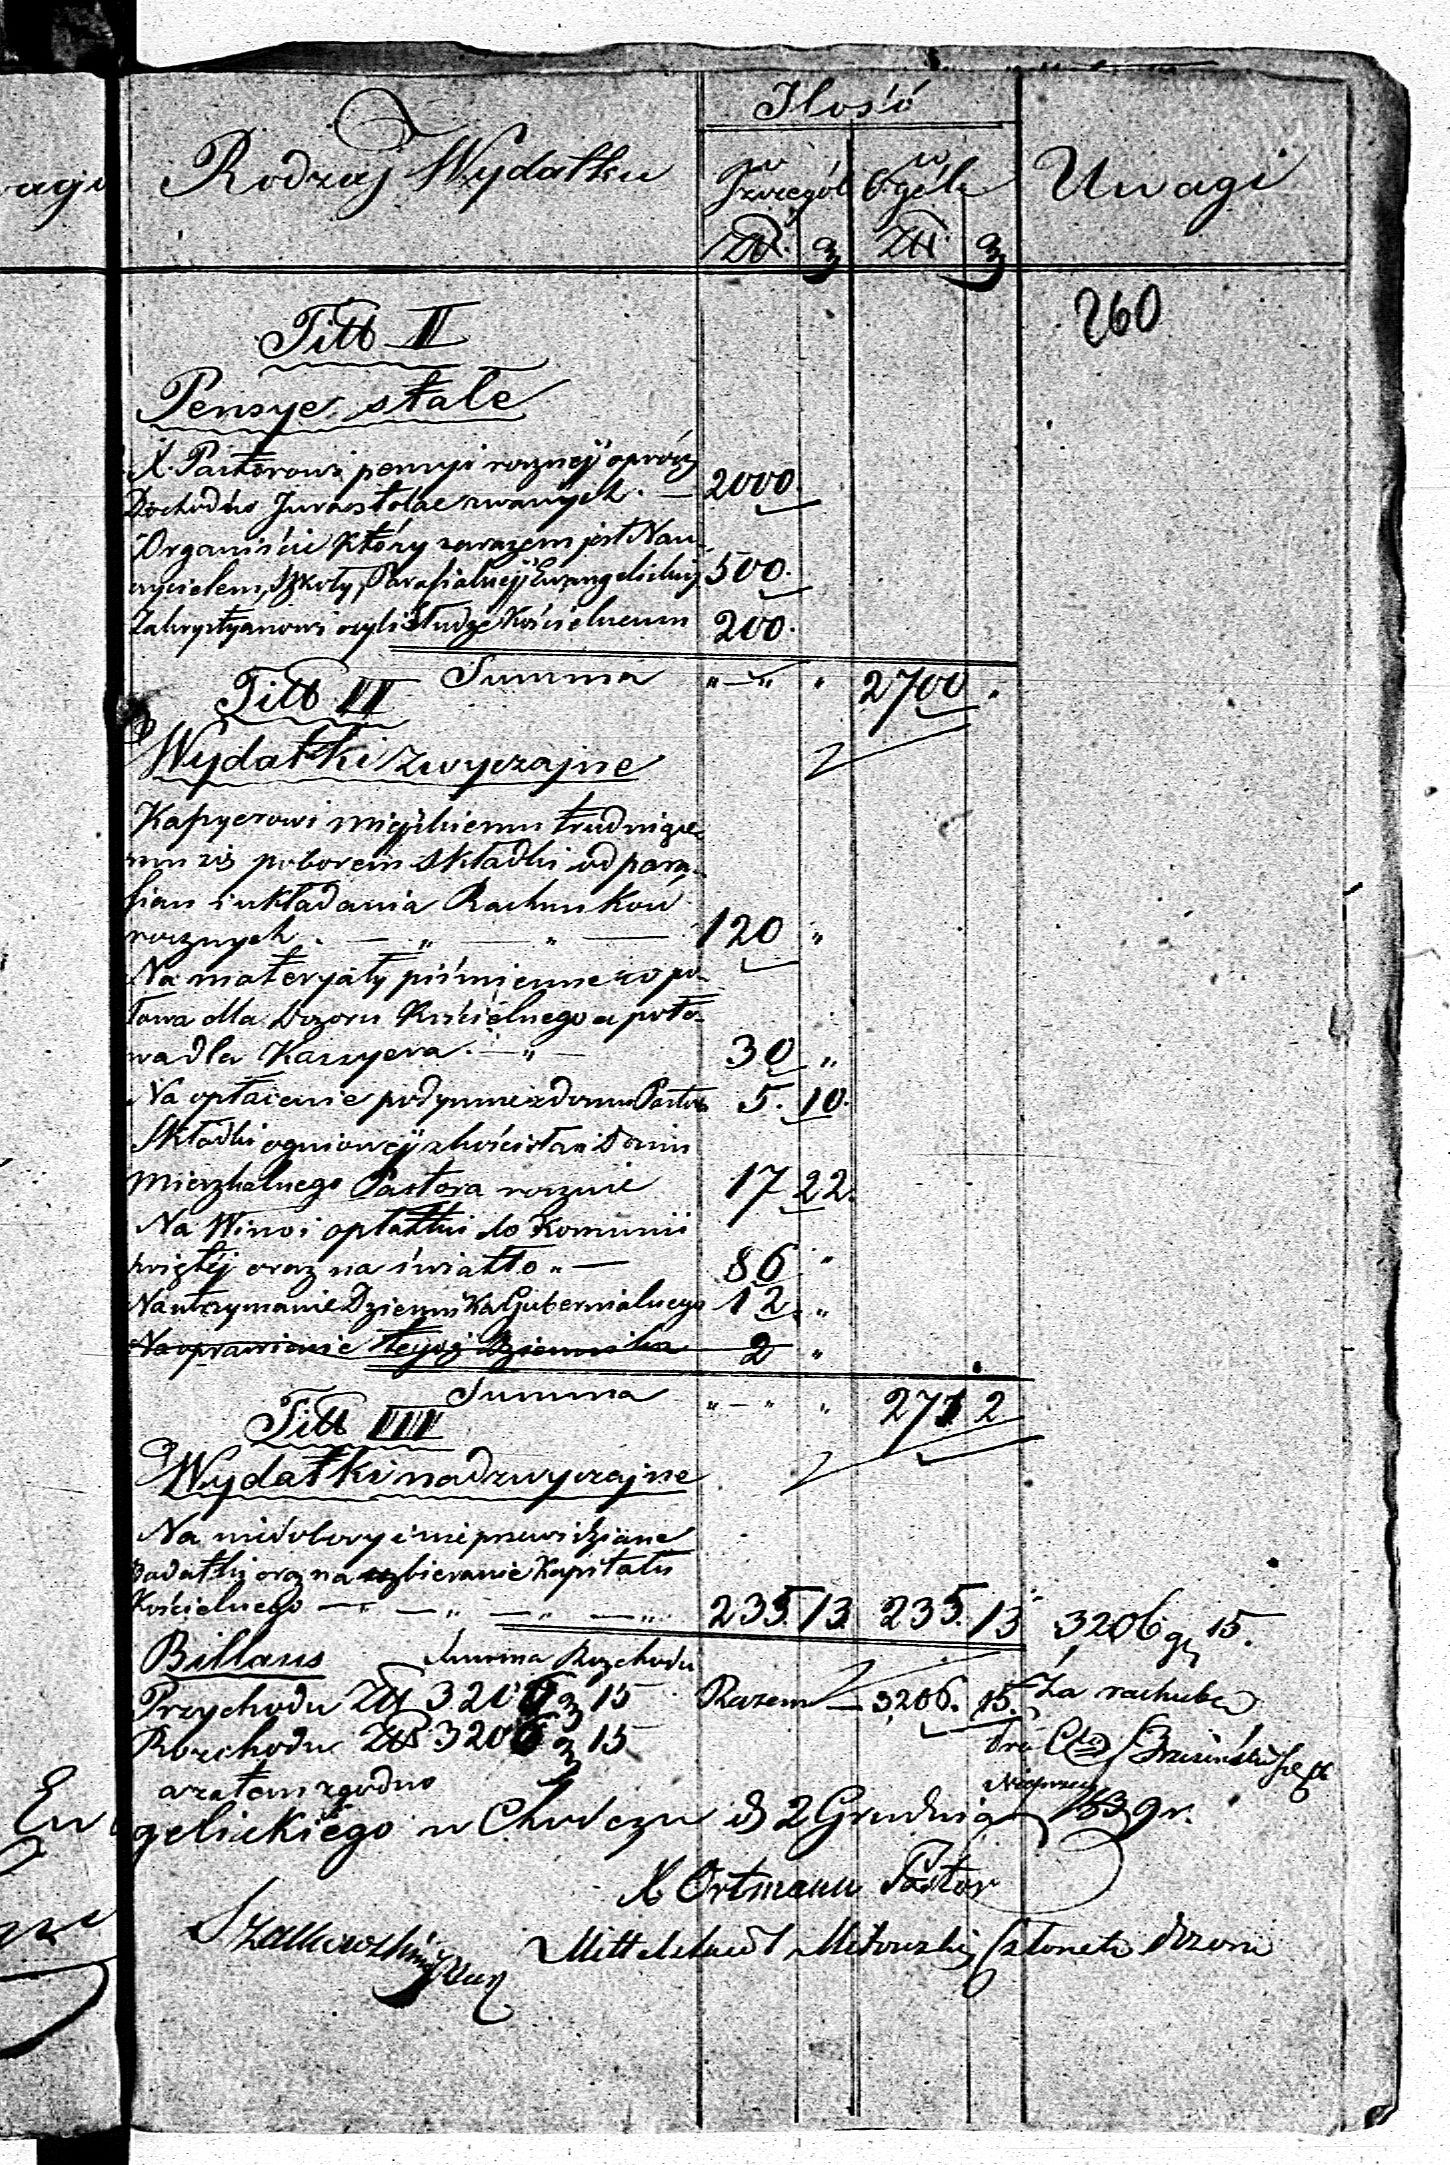 Ilość
Rodzaj Wydatku
w Szczegól
w Ogóle
Uwagi
Zł. g Zł. g
260
Titt II
Pensye stałe
X. Pastorowi pensyi rocznej oprócz
Dochodów Jura stolae zwanych. — 2000.
Organiście który zarazem jest Nau-
czycielem Szkoły Parafialnej Ewangelickiej 500.
Zakrystyanowi czyli Słudze Kościelnemu 200.
Summa „ — „ . 2700 .
Titt II
Wydatki zwyczajne
Kassyerowi miejskiemu trudniące-
mu się poborem składki od para-
fian i układania Rachunków
rocznych . — „ — „ — 120 „
Na materyały piśmienne w po-
łowa dla Dozoru Kościelnego a poło-
wa dla Kassyera. — „ — 30 „
Na opłacenie podymne z domu Pastora 5. 10.
Składki ogniowej z kościoła i Domu
mieszkalnego Pastora rocznie 17 22.
Na Wino i opłatki do Komunii
świętéj oraz na światło „ — 86 „
Na utrzymanie Dziennika Gubernialnego 12. „
Na oprawienie tegoż Dziennika 2 „
Summa „ — „ „ 271 2
Titt III
Wydatki nadzwyczajne
Na niedobory i nieprzewidziane
wydatki oraz na uzbieranie Kapitału
Kościelnego — „ — „ — „ — „ 235. 13 235. 13 3206 g 15.
Billans Summa Rozchodu
Przychodu Zł 3206 g 15 Razem — 3206. 15. Za rachubę
Rozchodu Zł 3206 g 15
a zatem zgodno
Ewangelickiego w Chodczu d 2 Grudnia 1839 r.
X Ortmann Pastor
Członek Dozoru